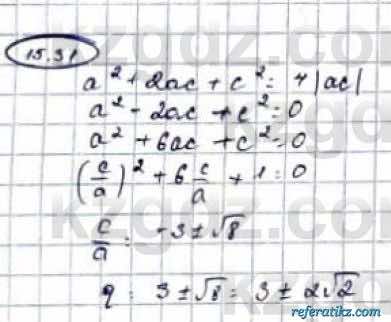 15.31
a² + 2ac + c² = 4|ac|
a² - 2ac + c² = 0
a² + 6ac + c² = 0
(c/a)² + 6 c/a + 1 = 0
c/a = -3 ± √8
q = 3 ± √8 = 3 ± 2√2
referatikz.com